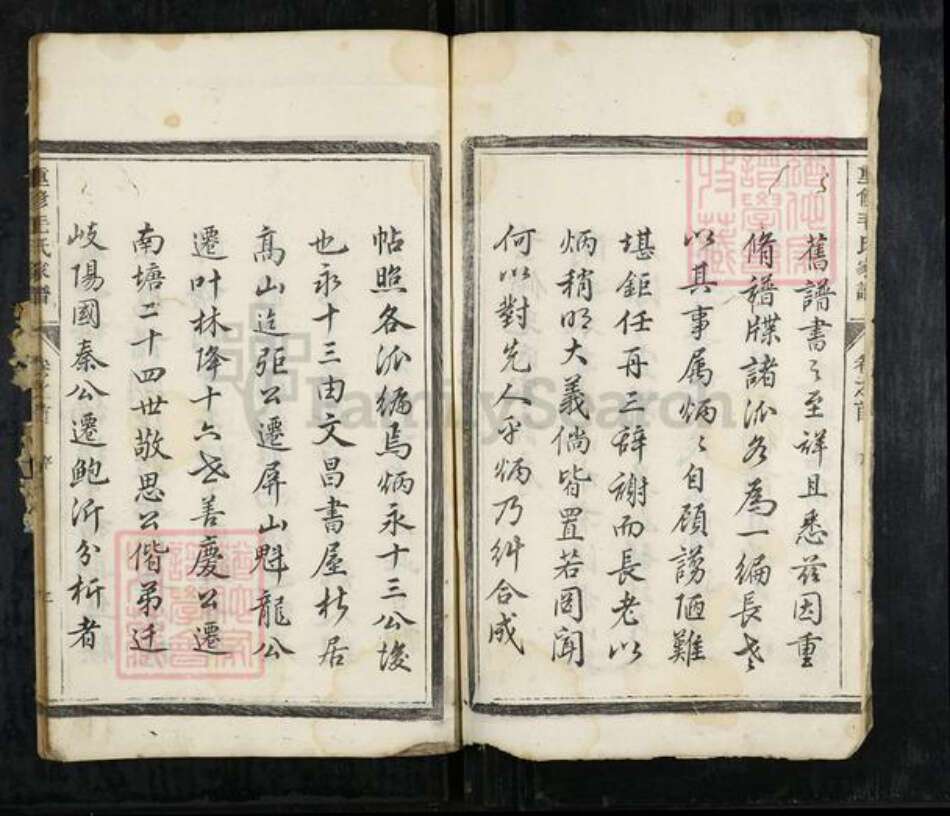 舊譜書之至詳且悉茲因重
脩譜牒諸派各為一編長老
以其事属炳炳自顧謭陋難
堪鉅任再三辞謝而長老以
炳稍明大義倘皆置若罔聞
何以對先人乎炳乃糾合成
帖照各派編焉炳永十三公後
也永十三由文昌書屋杜居
高山迄弡公遷屏山魁龍公
遷叶林降十六世善慶公遷
南塘二十四世敬思公偕弟迁
岐陽國秦公遷鮑沂分析者
重修毛氏家譜
卷之首
重修毛氏家譜
卷之首
FamilySearch